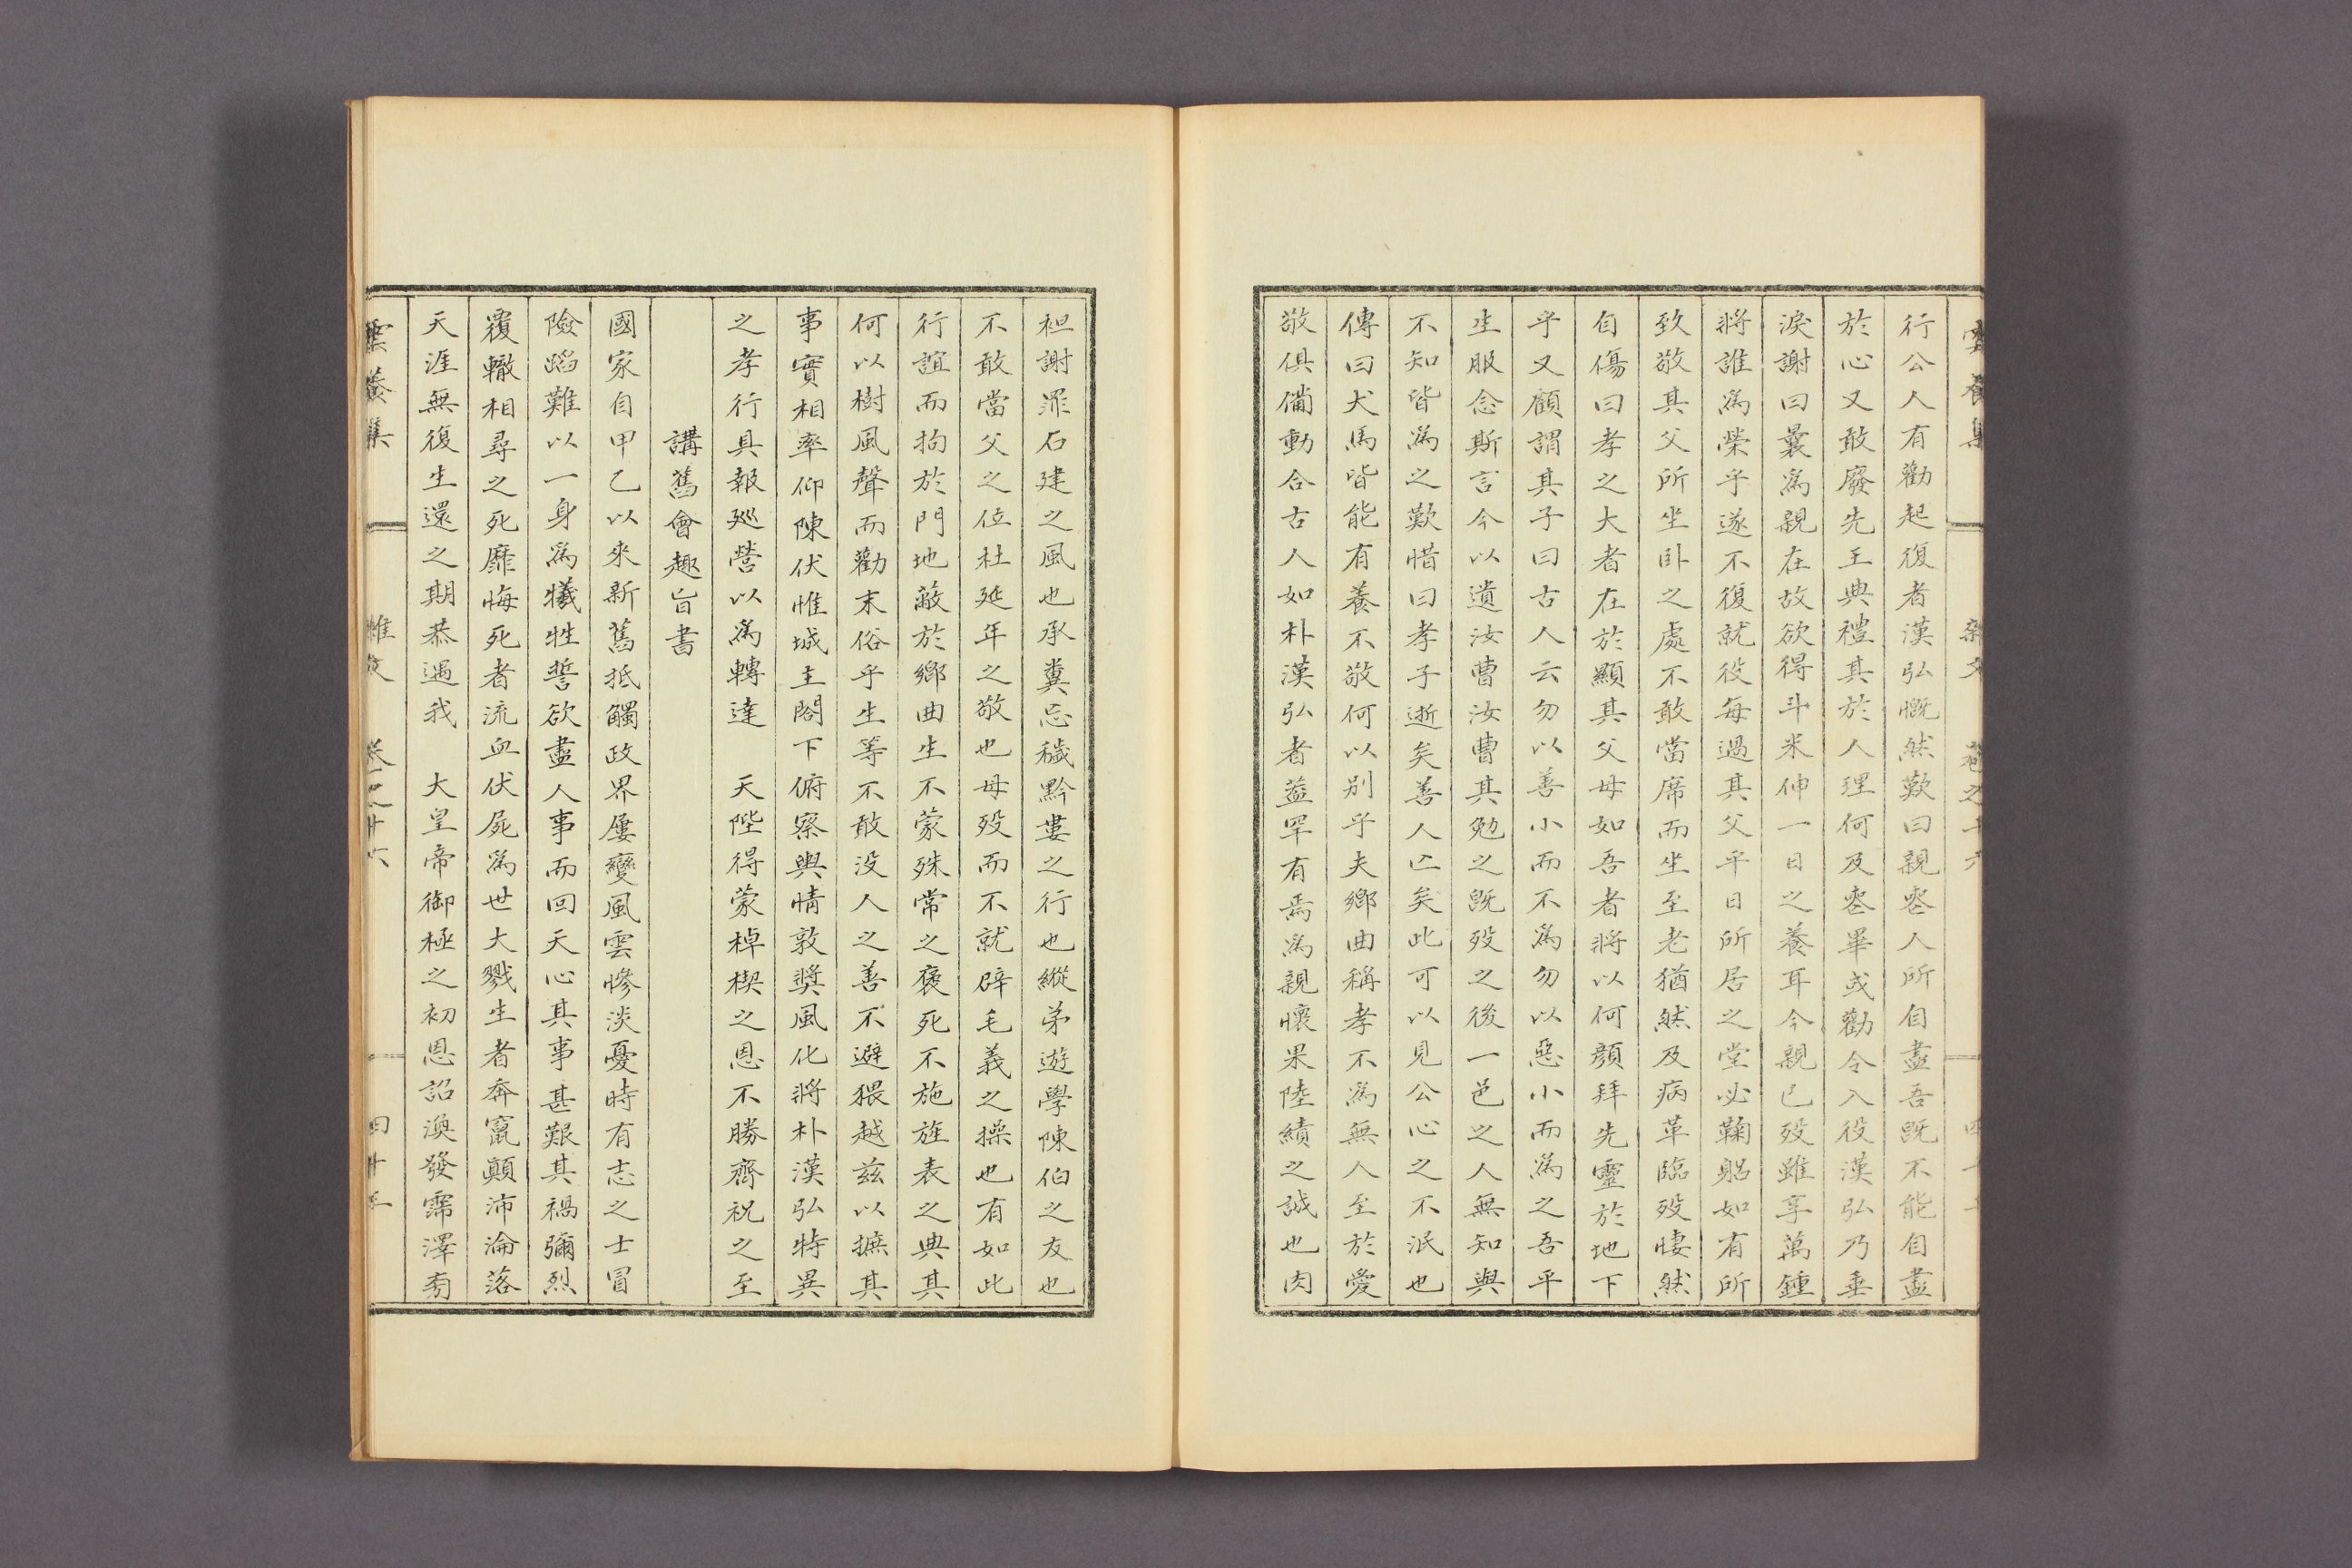 雲養集 雜文 卷之十六
行公人有勸起復者漢弘慨然歎曰親喪人所自盡吾既不能自盡
於心又敢廢先王典禮其於人理何及喪畢或勸令入役漢弘乃垂
淚謝曰曩爲親在故欲得斗米伸一日之養耳今親已歿雖享萬鍾
將誰爲榮乎遂不復就役每過其父平日所居之堂必鞠躬如有所
致敬其父所坐臥之處不敢當席而坐至老猶然及病革臨歿悽然
自傷曰孝之大者在於顯其父母如吾者將以何顏拜先靈於地下
乎又顧謂其子曰古人云勿以善小而不爲勿以惡小而爲之吾平
生服念斯言今以遺汝曹汝曹其勉之既歿之後一邑之人無知與
不知皆爲之歎惜曰孝子逝矣善人亡矣此可以見公心之不泯也
傳曰犬馬皆能有養不敬何以別乎夫鄉曲稱孝不爲無人至於愛
敬俱備動合古人如朴漢弘者蓋罕有焉爲親懷果陸績之誠也肉
袒謝罪石建之風也承糞忘穢黔婁之行也縱弟遊學陳伯之友也
不敢當父之位杜延年之敬也母歿而不就辟毛義之操也有如此
行誼而拘於門地蔽於鄉曲生不蒙殊常之褒死不施旌表之典其
何以樹風聲而勸末俗乎生等不敢沒人之善不避猥越茲以摭其
事實相率仰陳伏惟城主閤下俯察輿情敦獎風化將朴漢弘特異
之孝行具報巡營以爲轉達 天陛得蒙棹楔之恩不勝齊祝之至
講舊會趣旨書
國家自甲乙以來新舊抵觸政界屢變風雲慘淡憂時有志之士冒
險蹈難以一身爲犧牲誓欲盡人事而回天心其事甚艱其禍彌烈
覆轍相尋之死靡悔死者流血伏屍爲世大戮生者奔竄顚沛淪落
天涯無復生還之期恭遇我 大皇帝御極之初恩詔渙發霈澤旁
雲養集 雜文 卷之十六